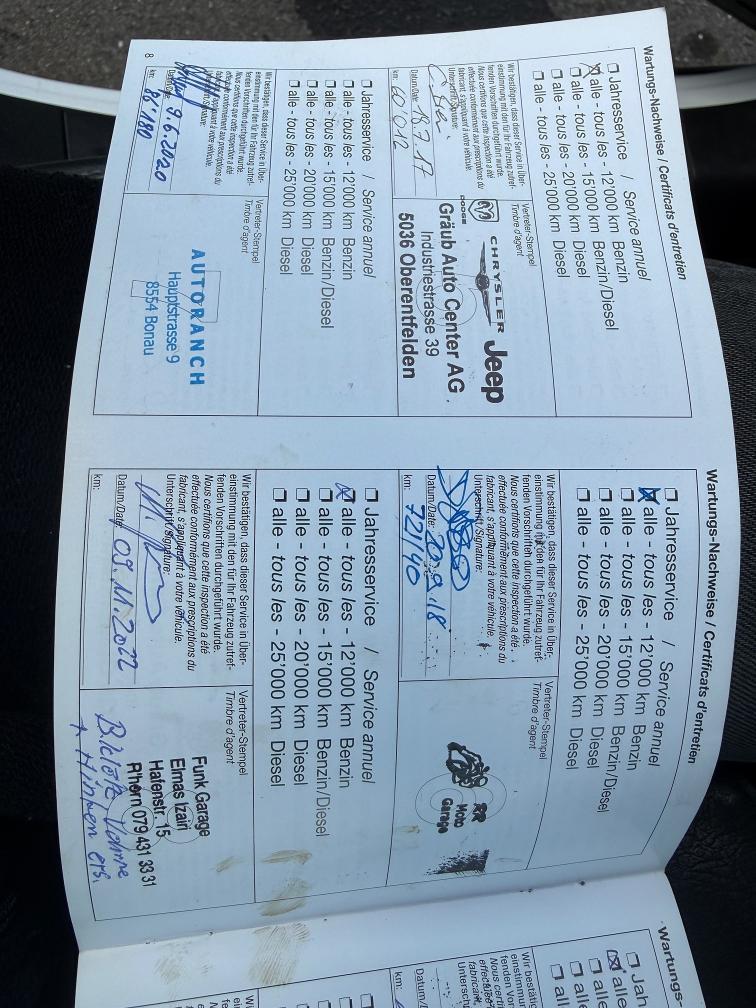 Wartungs-Nachweise / Certificats d'entretien
❑ Jahresservice / Service annuel
☒ alle - tous les - 12'000 km Benzin
❑ alle - tous les - 15'000 km Benzin/Diesel
❑ alle - tous les - 20'000 km Diesel
❑ alle - tous les - 25'000 km Diesel
Wir bestätigen, dass dieser Service in Über-
einstimmung mit den für Ihr Fahrzeug zutref-
fenden Vorschriften durchgeführt wurde.
Nous certifions que cette inspection a été
effectuée conformément aux prescriptions du
fabricant, s'appliquant à votre véhicule.
Unterschrift/Signature:
Datum/Date: 18.7.17
km: 60'012
Vertreter-Stempel
Timbre d'agent
CHRYSLER Jeep
DODGE
Gräub Auto Center AG
Industriestrasse 39
5036 Oberentfelden
❑ Jahresservice / Service annuel
❑ alle - tous les - 12'000 km Benzin
❑ alle - tous les - 15'000 km Benzin/Diesel
❑ alle - tous les - 20'000 km Diesel
❑ alle - tous les - 25'000 km Diesel
Wir bestätigen, dass dieser Service in Über-
einstimmung mit den für Ihr Fahrzeug zutref-
fenden Vorschriften durchgeführt wurde.
Nous certifions que cette inspection a été
effectuée conformément aux prescriptions du
fabricant, s'appliquant à votre véhicule.
Unterschrift/Signature:
Datum/Date: 9.6.2020
km: 86'180
Vertreter-Stempel
Timbre d'agent
AUTORANCH
Hauptstrasse 9
8554 Bonau
8
Wartungs-Nachweise / Certificats d'entretien
❑ Jahresservice / Service annuel
☒ alle - tous les - 12'000 km Benzin
❑ alle - tous les - 15'000 km Benzin/Diesel
❑ alle - tous les - 20'000 km Diesel
❑ alle - tous les - 25'000 km Diesel
Wir bestätigen, dass dieser Service in Über-
einstimmung mit den für Ihr Fahrzeug zutref-
fenden Vorschriften durchgeführt wurde.
Nous certifions que cette inspection a été
effectuée conformément aux prescriptions du
fabricant, s'appliquant à votre véhicule.
Unterschrift/Signature:
Datum/Date: 20.9.18
km: 72140
Vertreter-Stempel
Timbre d'agent
RR
Moto
Garage
❑ Jahresservice / Service annuel
☒ alle - tous les - 12'000 km Benzin
❑ alle - tous les - 15'000 km Benzin/Diesel
❑ alle - tous les - 20'000 km Diesel
❑ alle - tous les - 25'000 km Diesel
Wir bestätigen, dass dieser Service in Über-
einstimmung mit den für Ihr Fahrzeug zutref-
fenden Vorschriften durchgeführt wurde.
Nous certifions que cette inspection a été
effectuée conformément aux prescriptions du
fabricant, s'appliquant à votre véhicule.
Unterschrift/Signature:
Datum/Date: 09.11.2022
km:
Vertreter-Stempel
Timbre d'agent
Funk Garage
Elmas Izairi
Hafenstr. 15
R'horn 079 431 33 31
Vorne
+ Hinten ers.
Wartungs-
❑ Jah
☒ alle
❑ alle
❑ alle
❑ al
Wir bestätig
einstimmun
fenden Vor
Nous cert
effectuée
fabricant,
Untersch
Datum/
km: